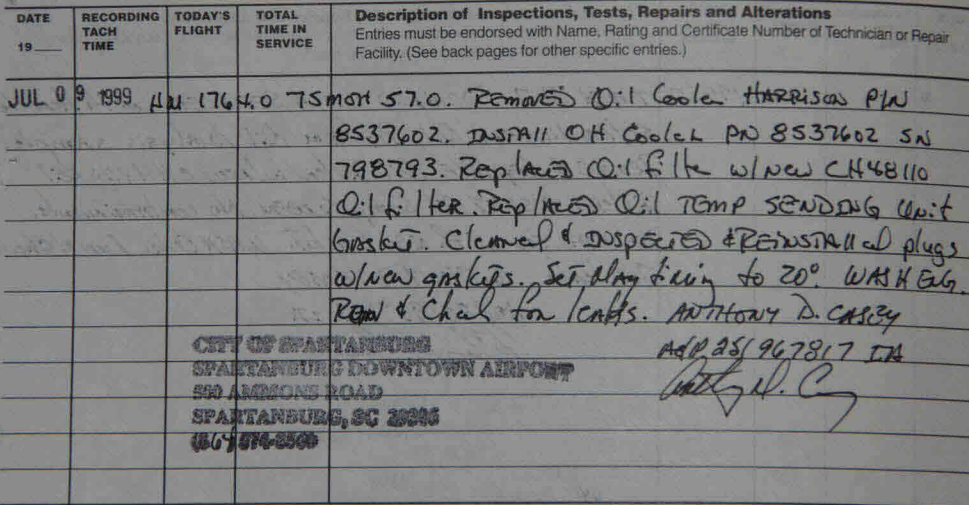 DATE
19
RECORDING TACH TIME
TODAY'S FLIGHT
TOTAL TIME IN SERVICE
Description of Inspections, Tests, Repairs and Alterations
Entries must be endorsed with Name, Rating and Certificate Number of Technician or Repair
Facility. (See back pages for other specific entries.)
JUL 09 1999 1764.0 TSMOH 57.0. Removed Oil Cooler HARRISON P/N
8537602. INSTALL OH Cooler PN 8537602 SN
798793. Replaced Oil filter w/New CH48110
Oil filter. Replaced Oil TEMP SENDING Unit
Gasket. Cleaned & INSPECTED & REINSTALLed plugs
w/new gaskets. Set Mag timing to 20°. WASH ENG.
& Check for leaks. ANTHONY D. CASEY
A&P 251967817 IA
CITY OF SPARTANBURG
SPARTANBURG DOWNTOWN AIRPORT
500 AMMONS ROAD
SPARTANBURG, SC
(864) 574-8500